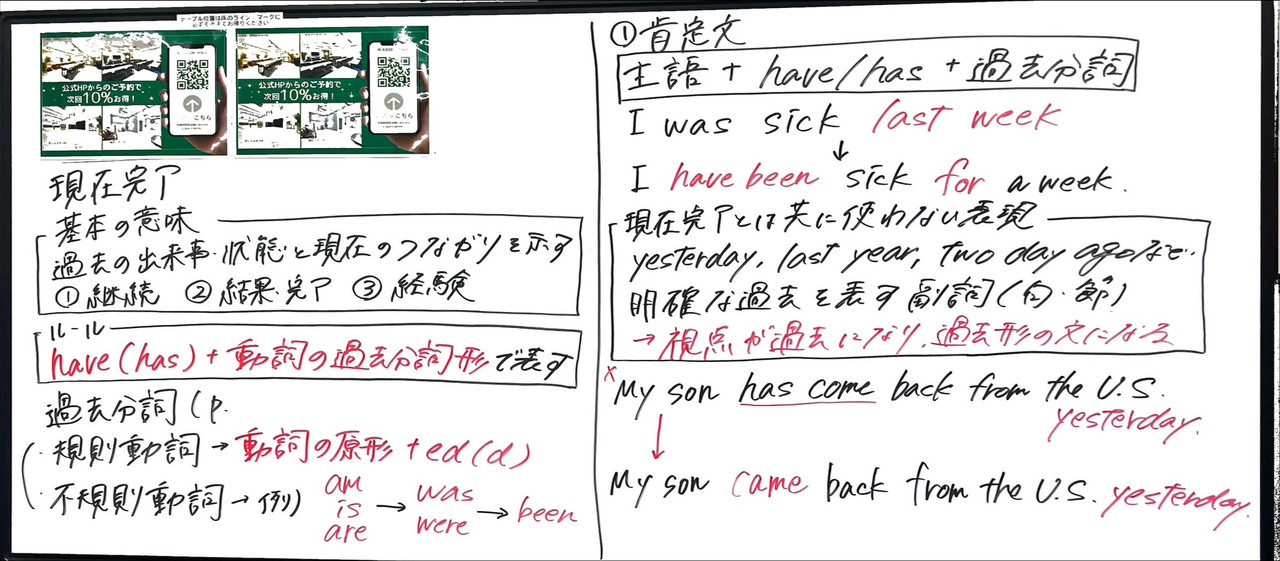 テーブル位置は床のライン、マークに
必ずそろえてお帰りください
公式HPからのご予約で
次回10%お得！
こちら
公式HPからのご予約で
次回10%お得！
こちら
現在完了
基本の意味
過去の出来事・状態と現在のつながりを示す
① 継続 ② 結果・完了 ③ 経験
ルール
have (has) + 動詞の過去分詞形で表す
過去分詞 (p.
・規則動詞 → 動詞の原形 + ed (d)
・不規則動詞 → 例) am is are → was were → been
① 肯定文
主語 + have/has + 過去分詞
I was sick last week
↓
I have been sick for a week.
現在完了とは共に使わない表現
yesterday, last year, two day agoなど…
明確な過去を表す副詞(句・節)
→ 視点が過去になり、過去形の文になる
× My son has come back from the U.S.
yesterday.
↓
My son came back from the U.S. yesterday.